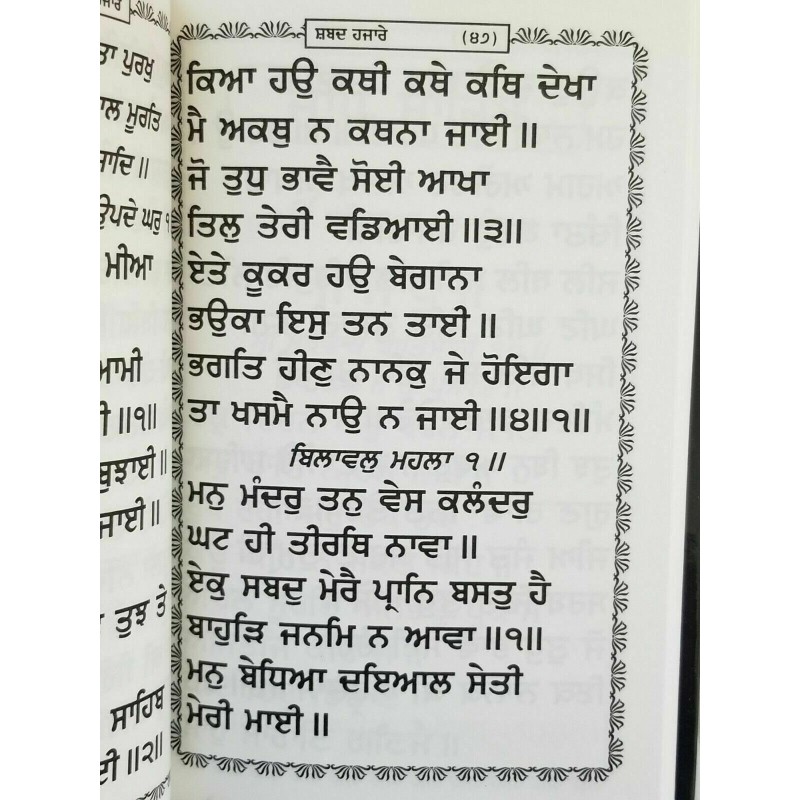 ਤਾ ਪੁਰਖੁ
ਾਲ ਮੂਰਤਿ
ਾਦਿ॥
ਉਪਦੇ ਘਰੁ ੧
ਮੀਆ
ਆਮੀ
ੀ॥੧॥
ਬੁਝਾਈ॥
ਜਾਈ॥
ਤੁਝ ਤੇ
ਸਾਹਿਬ
ਈ॥੨॥
ਸ਼ਬਦ ਹਜਾਰੇ (੪੭)
ਕਿਆ ਹਉ ਕਥੀ ਕਥੇ ਕਥਿ ਦੇਖਾ
ਮੈ ਅਕਥੁ ਨ ਕਥਨਾ ਜਾਈ॥
ਜੋ ਤੁਧੁ ਭਾਵੈ ਸੋਈ ਆਖਾ
ਤਿਲੁ ਤੇਰੀ ਵਡਿਆਈ॥੩॥
ਏਤੇ ਕੂਕਰ ਹਉ ਬੇਗਾਨਾ
ਭਉਕਾ ਇਸੁ ਤਨ ਤਾਈ॥
ਭਗਤਿ ਹੀਣੁ ਨਾਨਕੁ ਜੇ ਹੋਇਗਾ
ਤਾ ਖਸਮੈ ਨਾਉ ਨ ਜਾਈ॥੪॥੧॥
ਬਿਲਾਵਲੁ ਮਹਲਾ ੧॥
ਮਨੁ ਮੰਦਰੁ ਤਨੁ ਵੇਸ ਕਲੰਦਰੁ
ਘਟ ਹੀ ਤੀਰਥਿ ਨਾਵਾ॥
ਏਕੁ ਸਬਦੁ ਮੇਰੈ ਪ੍ਰਾਨਿ ਬਸਤੁ ਹੈ
ਬਾਹੁੜਿ ਜਨਮਿ ਨ ਆਵਾ॥੧॥
ਮਨੁ ਬੇਧਿਆ ਦਇਆਲ ਸੇਤੀ
ਮੇਰੀ ਮਾਈ॥